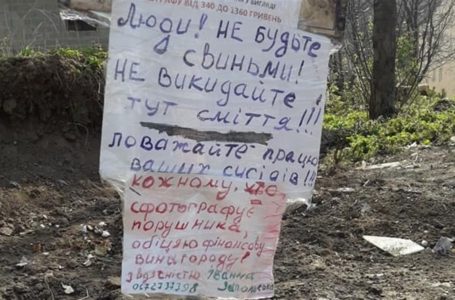 ВІД 340 ДО 1360 ГРИВЕНЬ
Люди! НЕ будьте
свиньми!
НЕ викидайте
тут сміття!!!
поважайте працю
ваших сусідів!!!
Кожному, хто
сфотографує
порушника,
обіцяю фінансову
винагороду!
Іванна